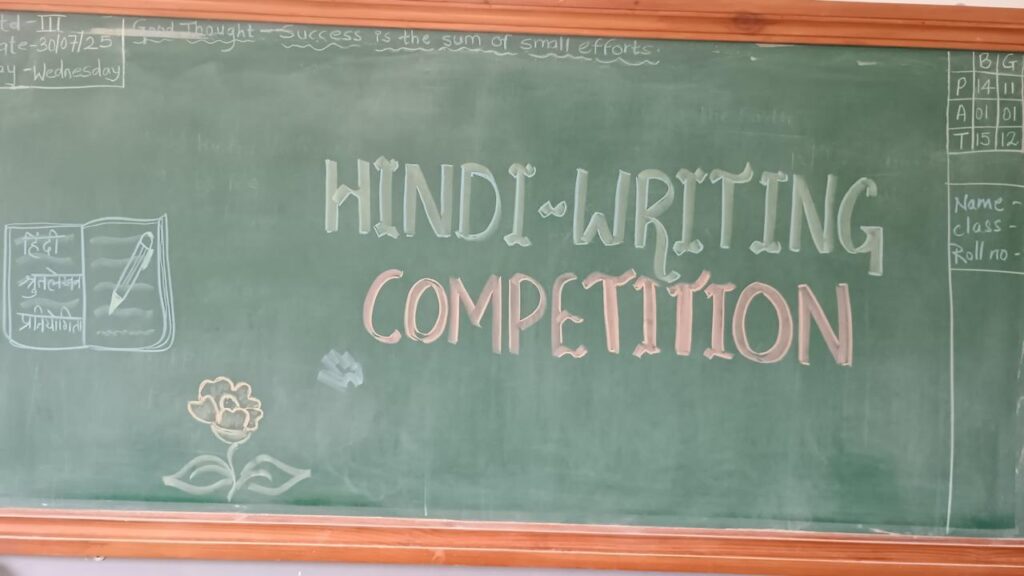 td - III
ate - 30/07/25
ay - Wednesday
Good Thought - Success is the sum of small efforts.
B G
P 14 11
A 01 01
T 15 12
HINDI-WRITING
COMPETITION
Name -
class -
Roll no -
हिंदी
श्रुतलेखन
प्रतियोगिता